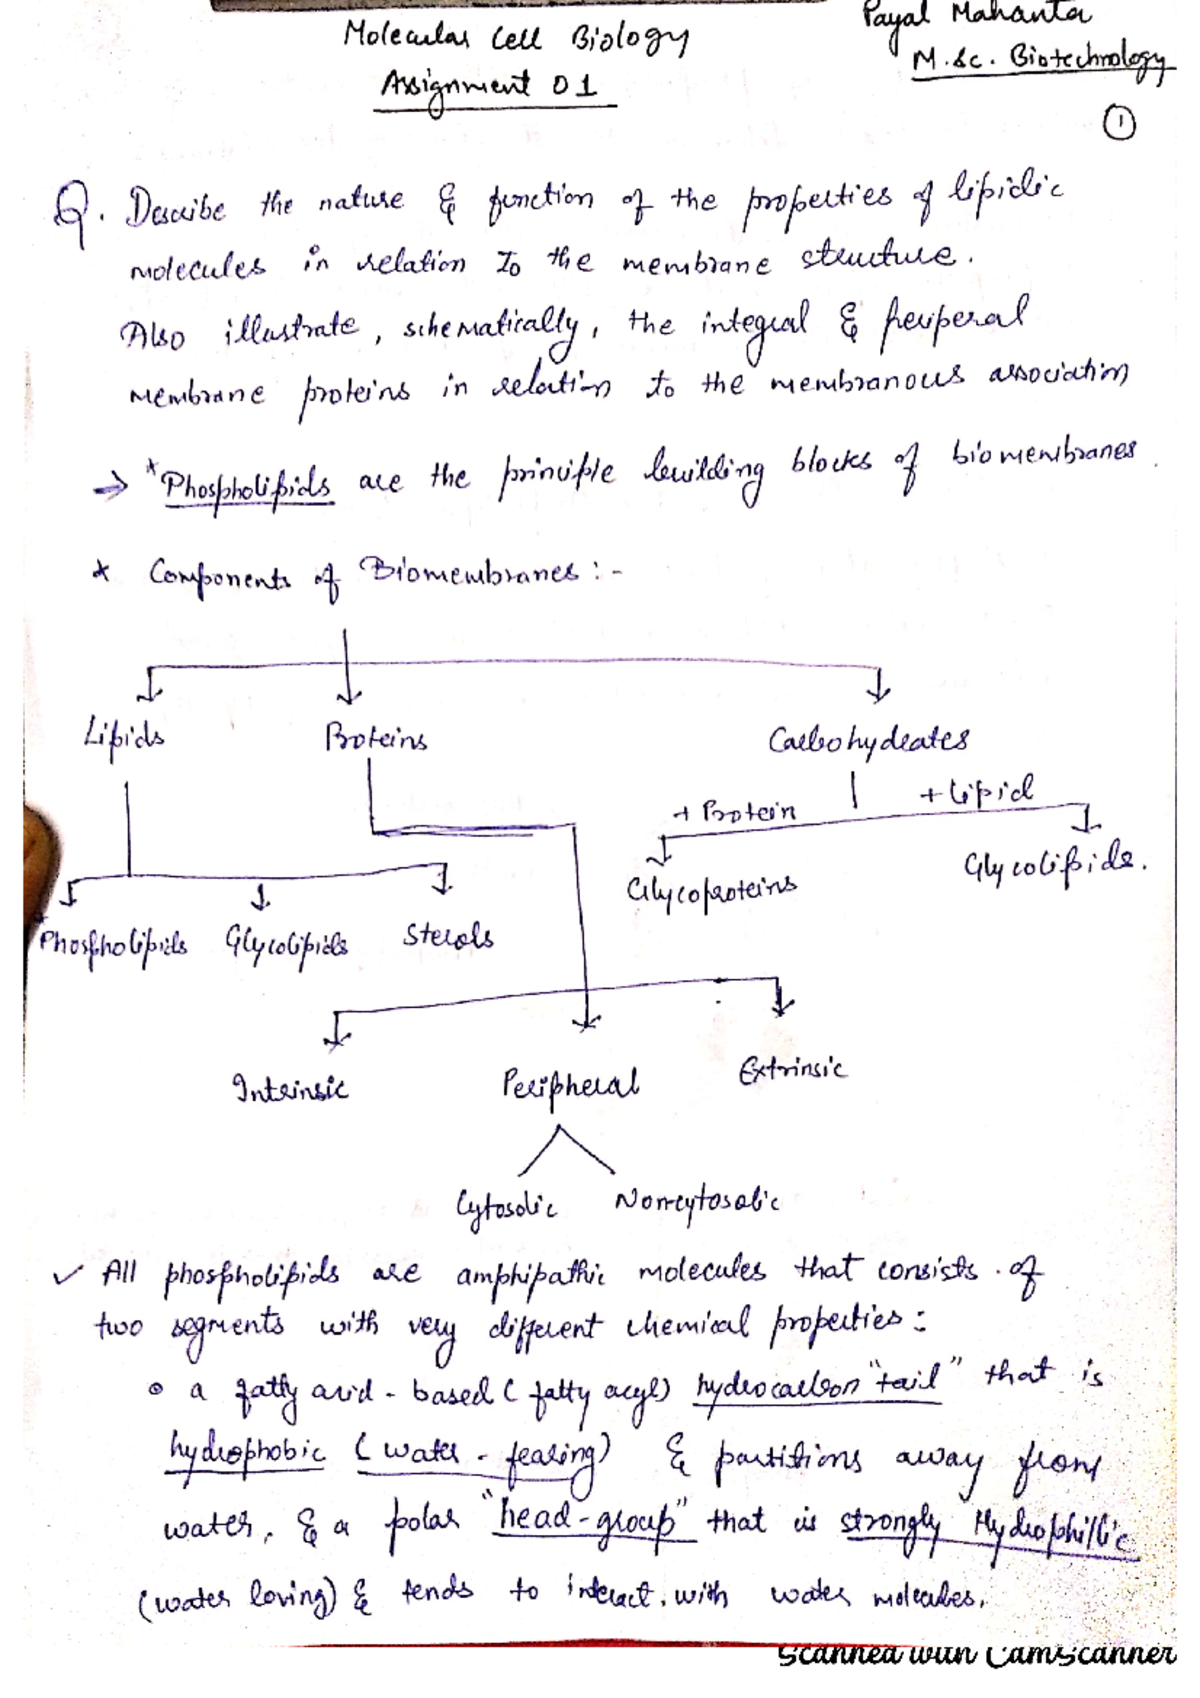 Molecular Cell Biology
Assignment 01
Payal Mahanta
M.Sc. Biotechnology
1
Q. Describe the nature & function of the properties of lipidic
molecules in relation to the membrane structure.
Also illustrate, schematically, the integral & peuperal
membrane proteins in relation to the membranous association
→ *Phospholipids are the principle building blocks of biomembranes.
* Components of Biomembranes :-
Lipids Proteins Carbohydrates
+ Protein + Lipid
Glycoproteins Glycolipids.
Phospholipids Glycolipids Sterols
Intrinsic Peripheral Extrinsic
Cytosolic Noncytosolic
✓ All phospholipids are amphipathic molecules that consists of
two segments with very different chemical properties:
• a fatty acid-based (fatty acyl) hydrocarbon "tail" that is
hydrophobic (water-fearing) & partitions away from
water, & a polar "head-group" that is strongly Hydrophillic
(water loving) & tends to interact with water molecules.
Scanned with CamScanner